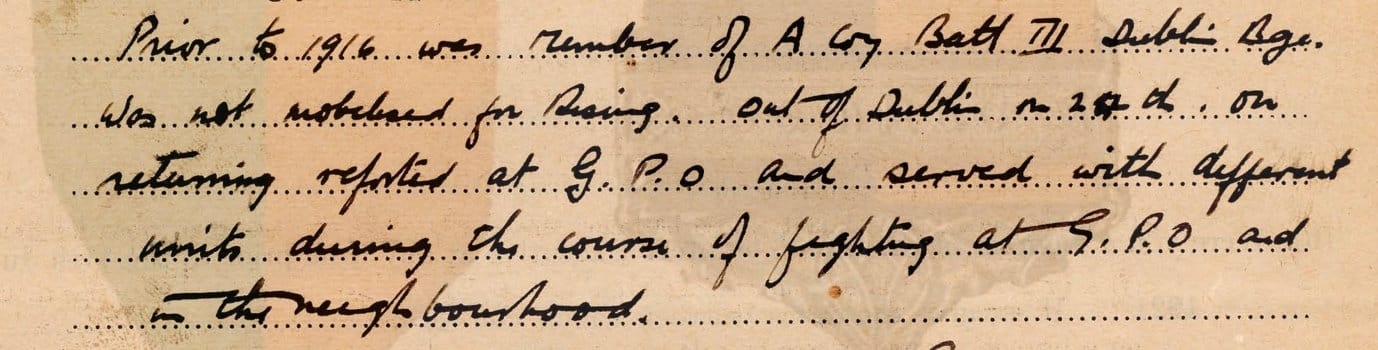 Prior to 1916 was member of A Coy Batt III Dublin Bge.
Was not mobelised for Rising. Out of Dublin on 24th. on
returning reported at G.P.O and served with defferent
units during the course of fighting at G.P.O and
in the neighbourhood.